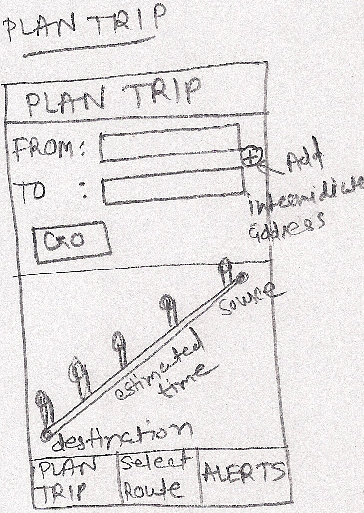 PLAN TRIP
PLAN TRIP
FROM:
Add
intermidiate
address
TO :
GO
source
estimated
time
destination
PLAN
TRIP
Select
Route
ALERTS